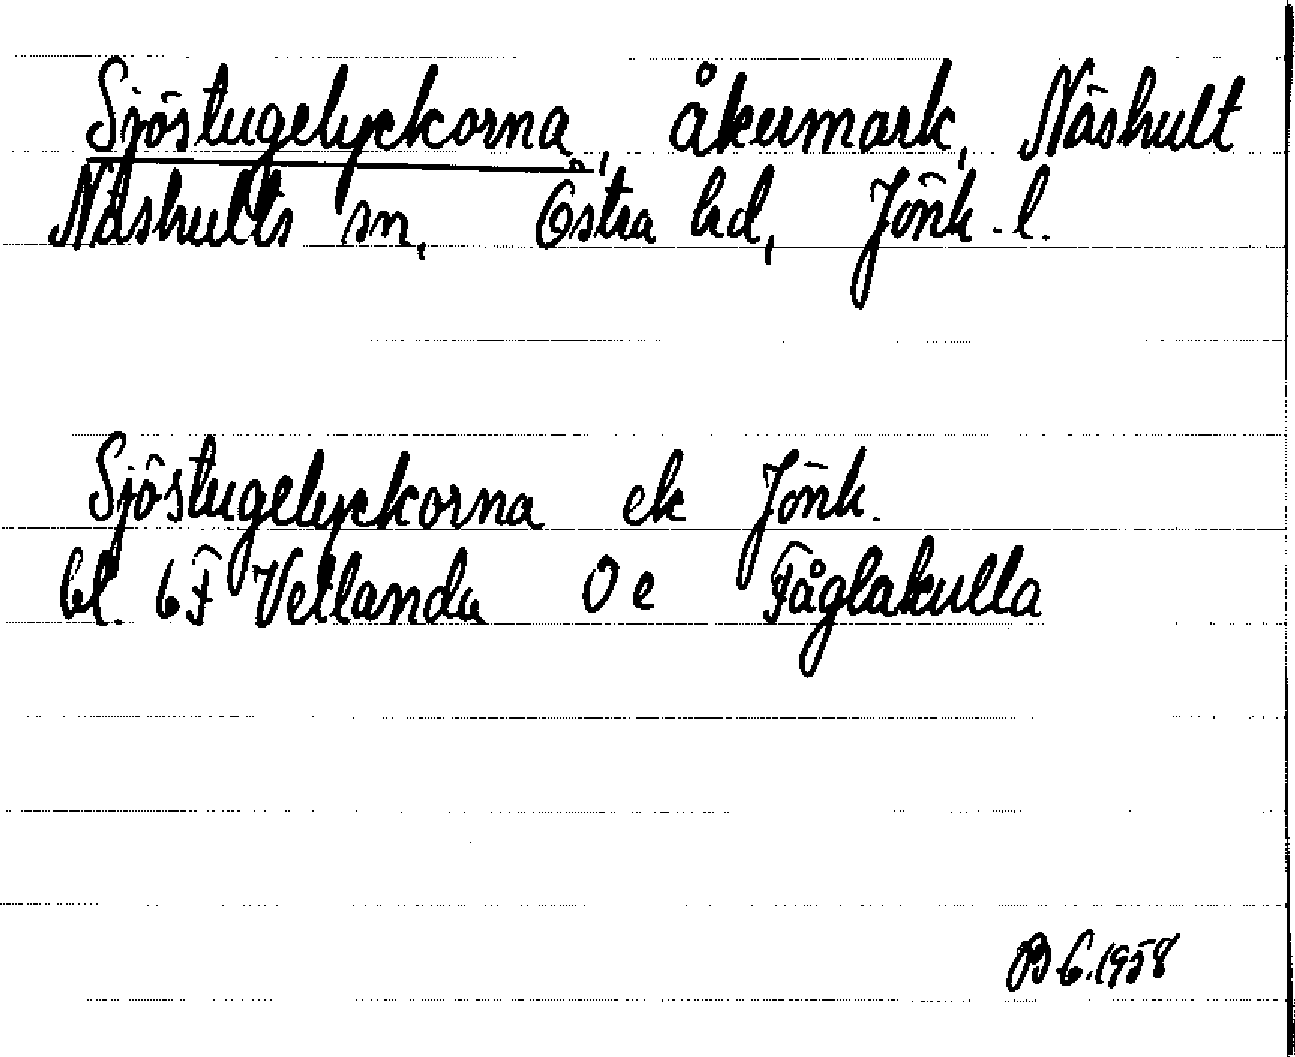 Sjöstugelyckorna, åkermark, Näshult
Näshults sn, Östra hd, Jönk. l.
Sjöstugelyckorna ek Jönk.
bl. 6F Vetlanda 0 e Fåglakulla
1958